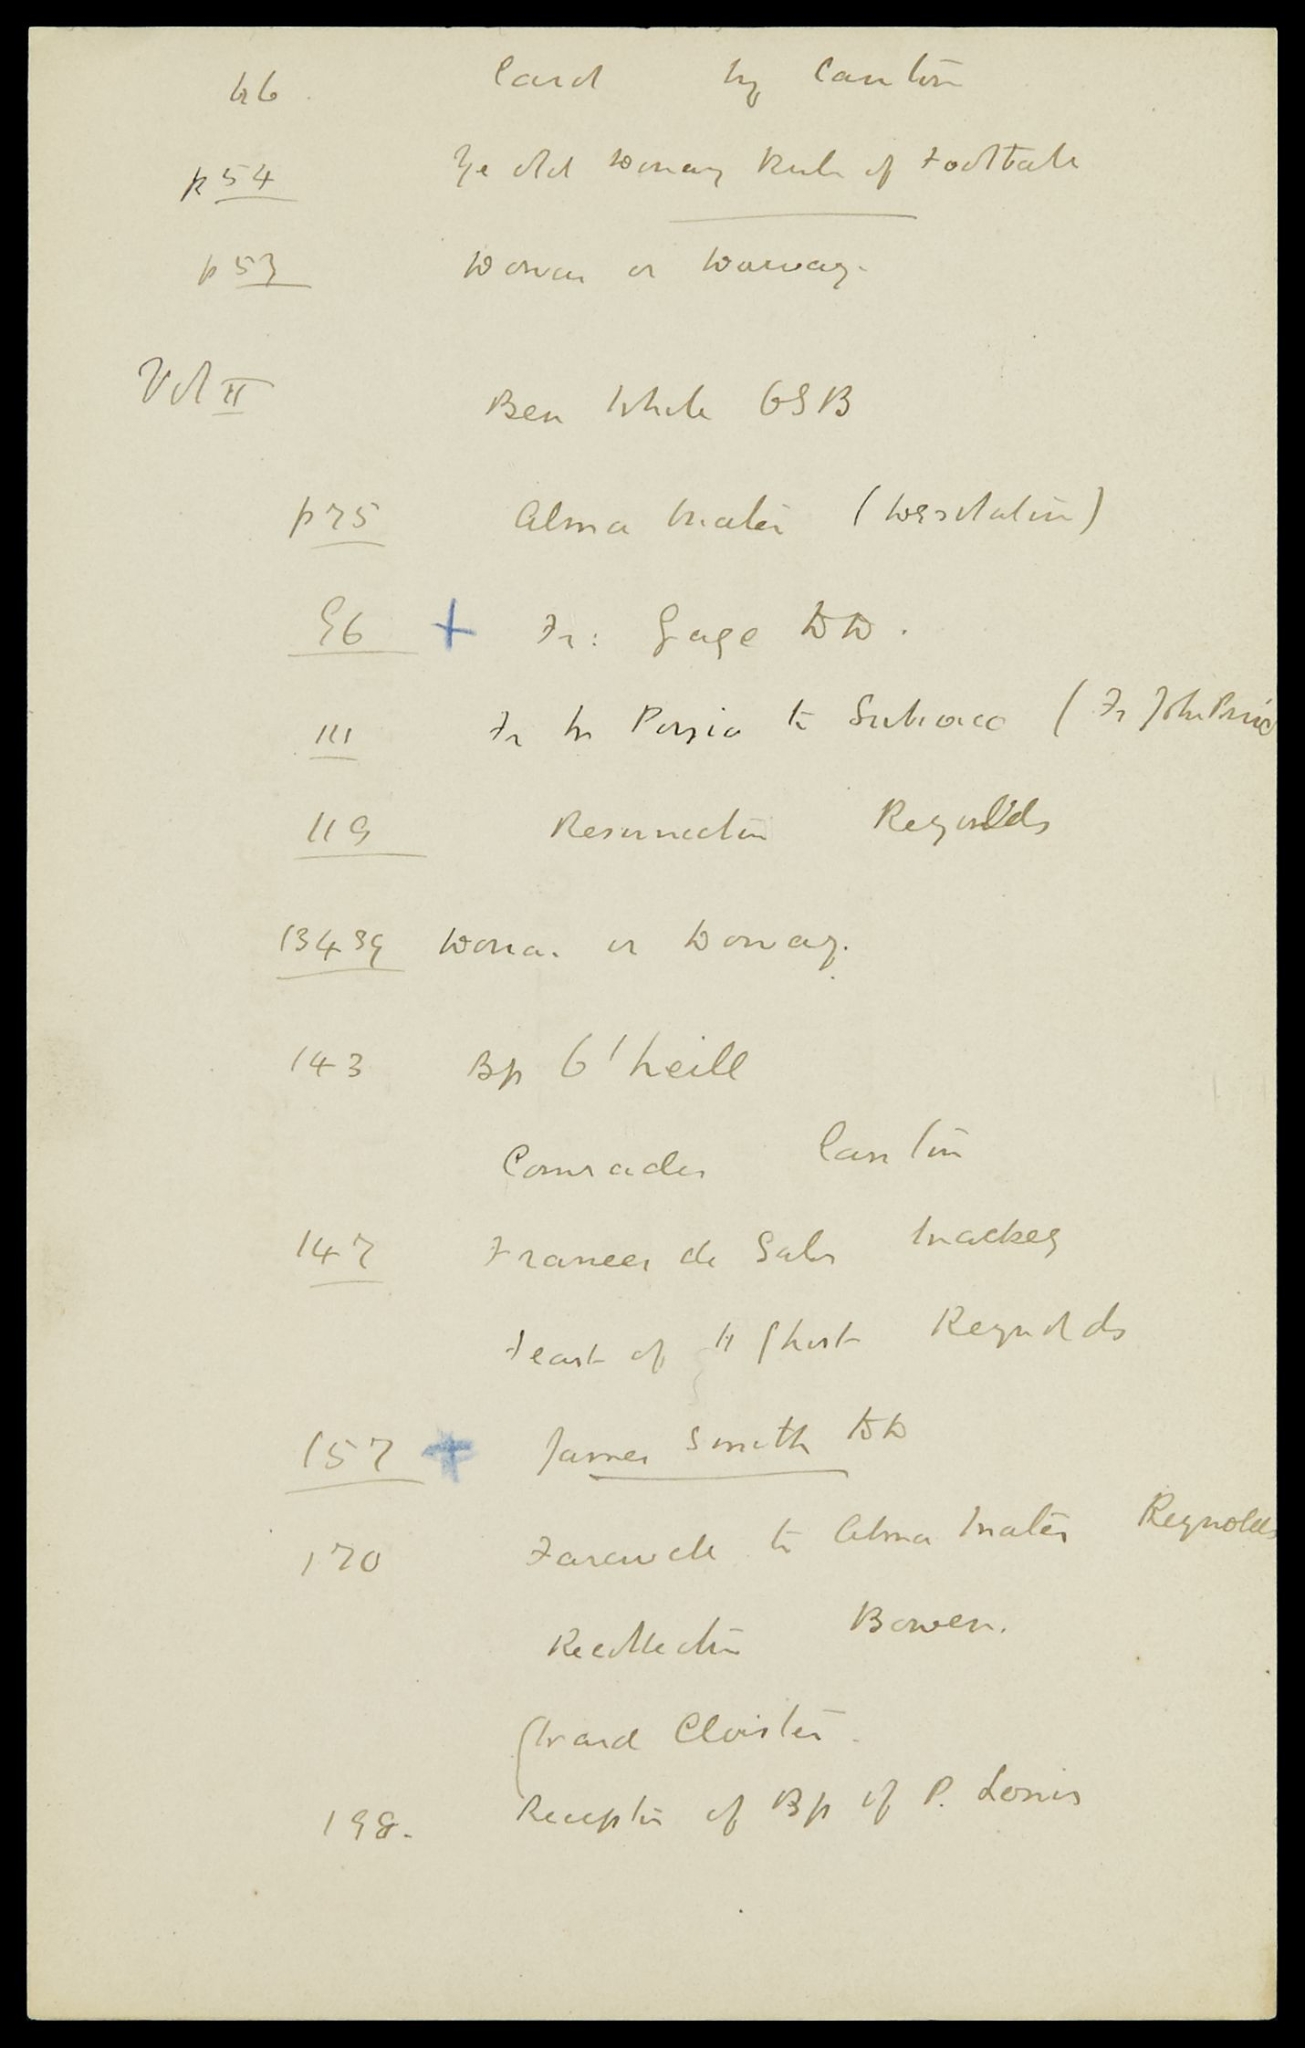 46. Card by Canton
p 54 Ye old Douay Rule of Football
p 53 Douai or Douay.
Vol II Ben White OSB
p 75 Alma Mater (Desolation)
96 + Fr: Gage DD.
111 Fr Persia to Subiaco (Fr John Price
119 Resurrection Reynolds
134 39 Doua. or Douay.
143 Bp O'Neill
Comrades Canton
147 Frances de Sales Mackey
Feast of H Ghost Reynolds
157 + James Smith DD
170 Farewell to Alma Mater Reynolds
Recollection Bowen.
Cloister.
198. Reception of Bp of P. Louis